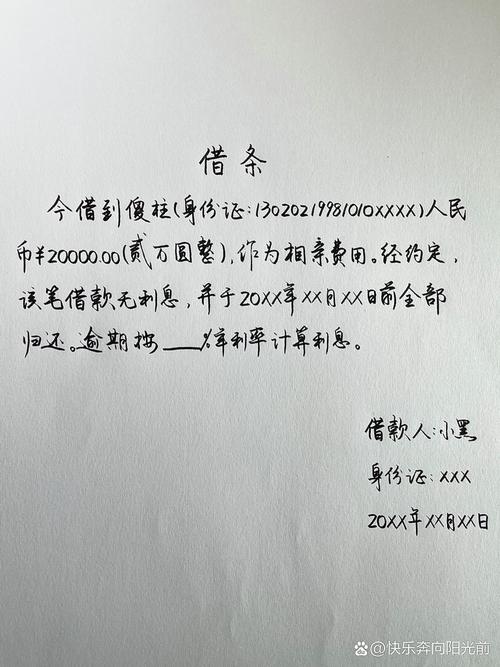 借条
今借到傻柱(身份证:13020219981010XXXX)人民
币¥20000.00(贰万圆整),作为相亲费用。经约定,
该笔借款无利息,并于20XX年XX月XX日前全部
归还。逾期按___%年利率计算利息。
借款人:小黑
身份证:XXX
20XX年XX月XX日
@快乐奔向阳光前